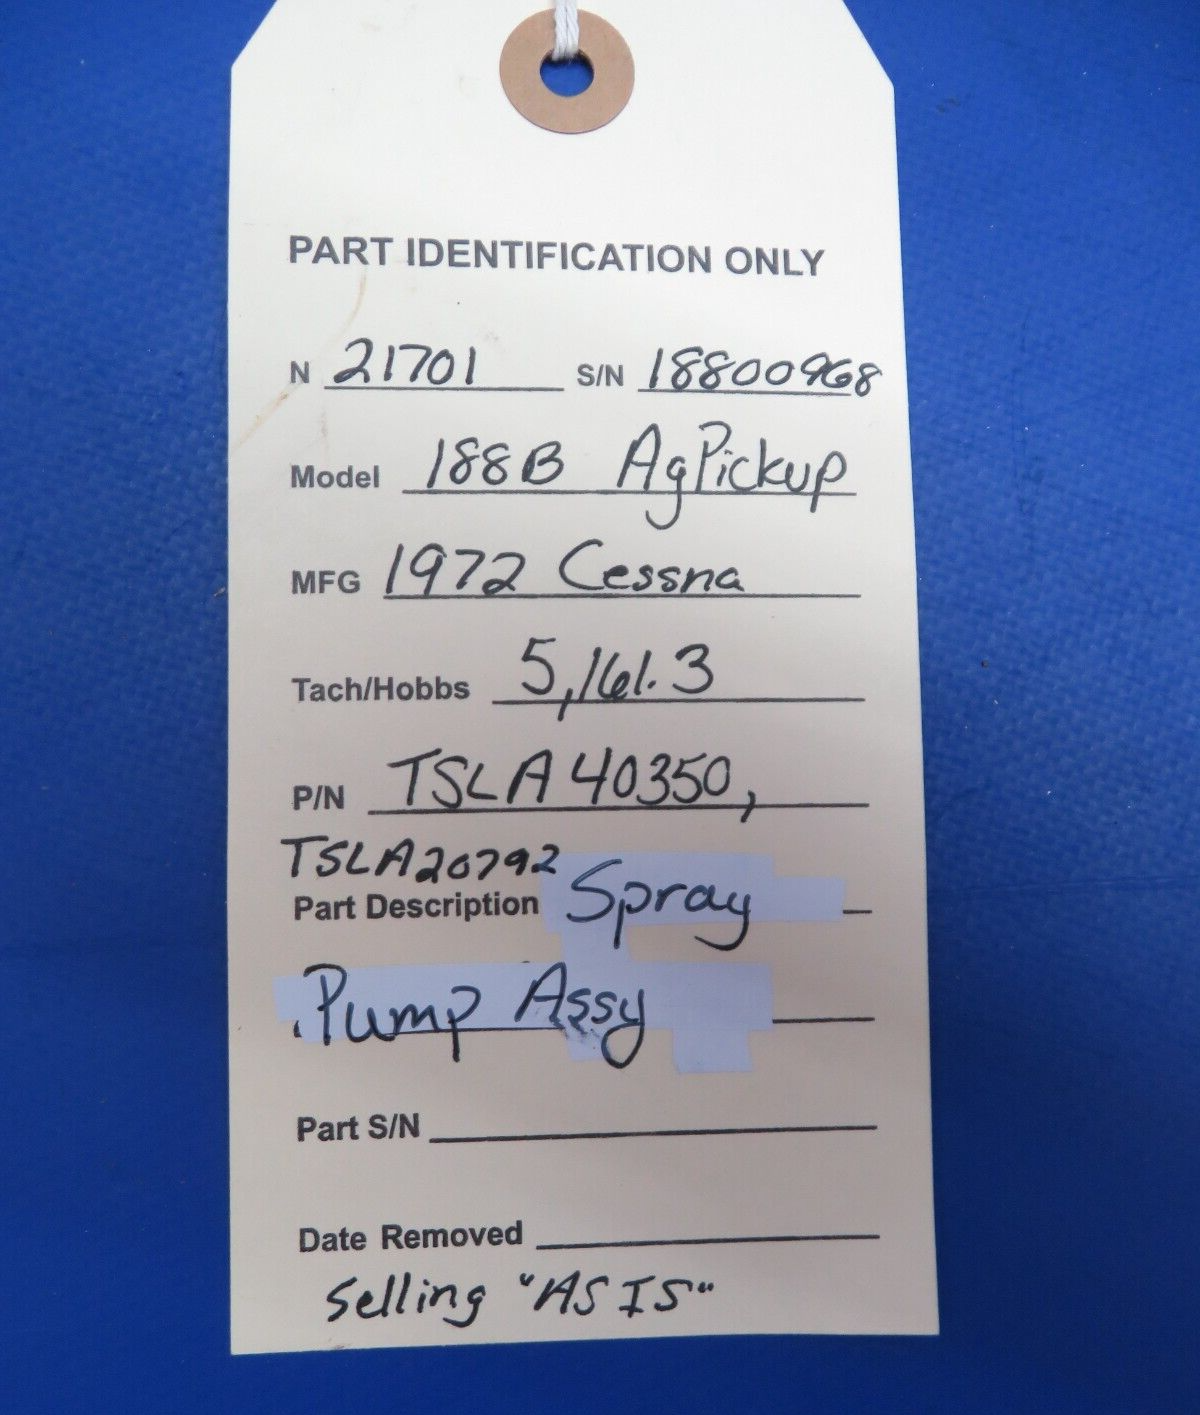 PART IDENTIFICATION ONLY
N 21701 S/N 18800968
Model 188B AgPickup
MFG 1972 Cessna
Tach/Hobbs 5,161.3
P/N TSLA40350,
TSLA20792
Part Description Spray
Pump Assy
Part S/N
Date Removed
Selling "AS IS"